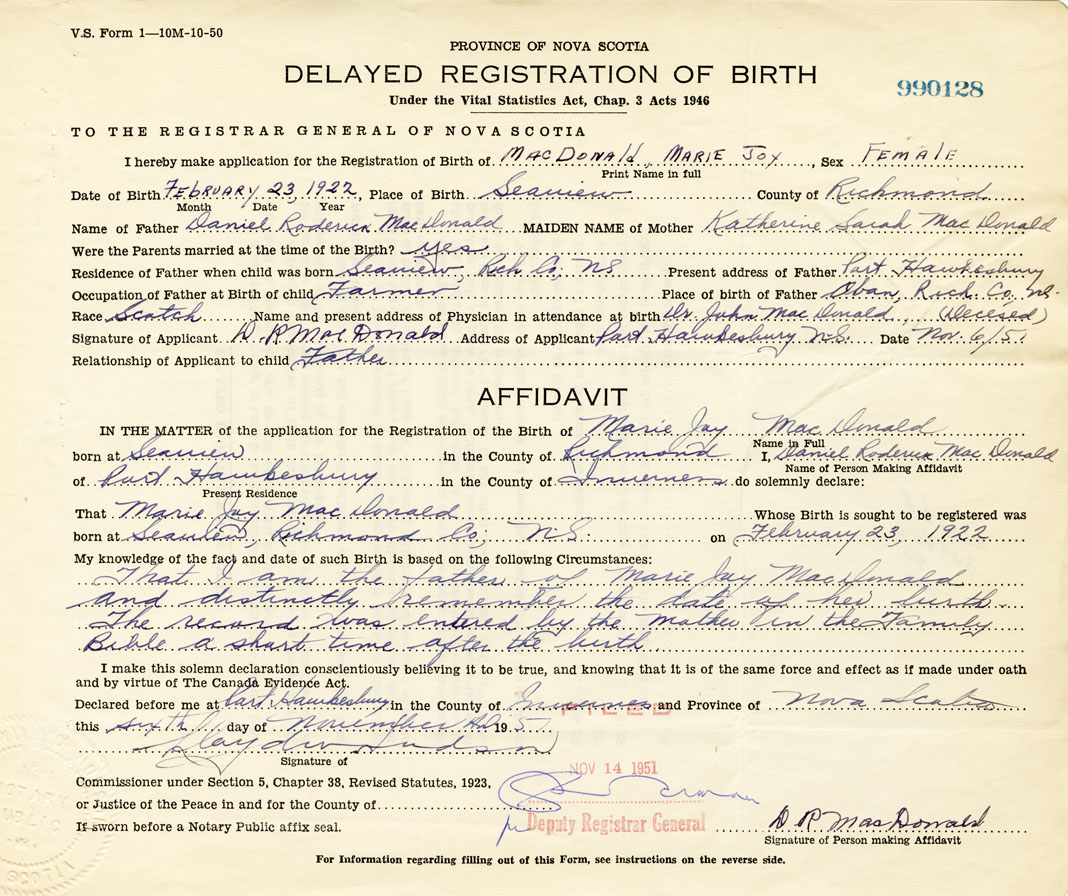 V.S. Form 1—10M-10-50
PROVINCE OF NOVA SCOTIA
DELAYED REGISTRATION OF BIRTH
990128
Under the Vital Statistics Act, Chap. 3 Acts 1946
TO THE REGISTRAR GENERAL OF NOVA SCOTIA
I hereby make application for the Registration of Birth of MacDonald, Marie Joy, Sex Female
Print Name in full
Date of Birth February 23, 1922, Place of Birth Seaview County of Richmond
Month Date Year
Name of Father Daniel Roderick MacDonald MAIDEN NAME of Mother Katherine Sarah MacDonald
Were the Parents married at the time of the Birth? yes
Residence of Father when child was born Seaview, Rich. Co., N.S. Present address of Father Port Hawkesbury
Occupation of Father at Birth of child Farmer Place of birth of Father Oban, Rich. Co. N.S.
Race Scotch Name and present address of Physician in attendance at birth Dr. John MacDonald, (Decesed)
Signature of Applicant D R MacDonald Address of Applicant Port Hawkesbury N.S. Date Nov. 6/51
Relationship of Applicant to child Father
AFFIDAVIT
IN THE MATTER of the application for the Registration of the Birth of Marie Joy MacDonald
Name in Full
born at Seaview in the County of Richmond I, Daniel Roderick MacDonald
Name of Person Making Affidavit
of Port Hawkesbury in the County of Inverness do solemnly declare:
Present Residence
That Marie Joy MacDonald Whose Birth is sought to be registered was
born at Seaview, Richmond Co., N.S. on February 23, 1922
My knowledge of the fact and date of such Birth is based on the following Circumstances:
That I am the father of Marie Joy MacDonald
and distinctly remember the date of her birth.
The record was entered by the Mother in the Family
Bible a short time after the birth
I make this solemn declaration conscientiously believing it to be true, and knowing that it is of the same force and effect as if made under oath
and by virtue of The Canada Evidence Act.
Declared before me at Port Hawkesbury in the County of Inverness and Province of Nova Scotia
FILED
this sixth day of November AD 1951
Signature of
NOV 14 1951
Commissioner under Section 5, Chapter 38, Revised Statutes, 1923,
or Justice of the Peace in and for the County of
Deputy Registrar General
D R MacDonald
If sworn before a Notary Public affix seal.
Signature of Person making Affidavit
For Information regarding filling out of this Form, see instructions on the reverse side.